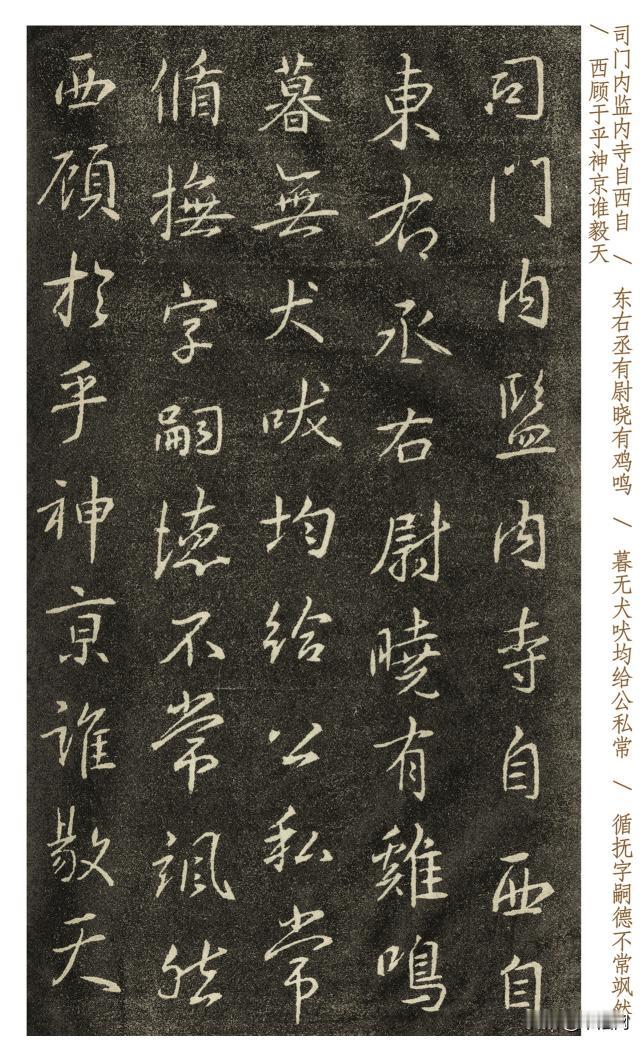 司门内监内寺自西自 / 东右丞有尉晓有鸡鸣 / 暮无犬吠均给公私常 / 循抚字嗣德不常飒然
/ 西顾于乎神京谁毅天
司門内監内寺自西自
東右丞右尉曉有雞鳴
暮無犬吠均給公私常
循撫字嗣德不常颯然
西顧於乎神京誰毅天